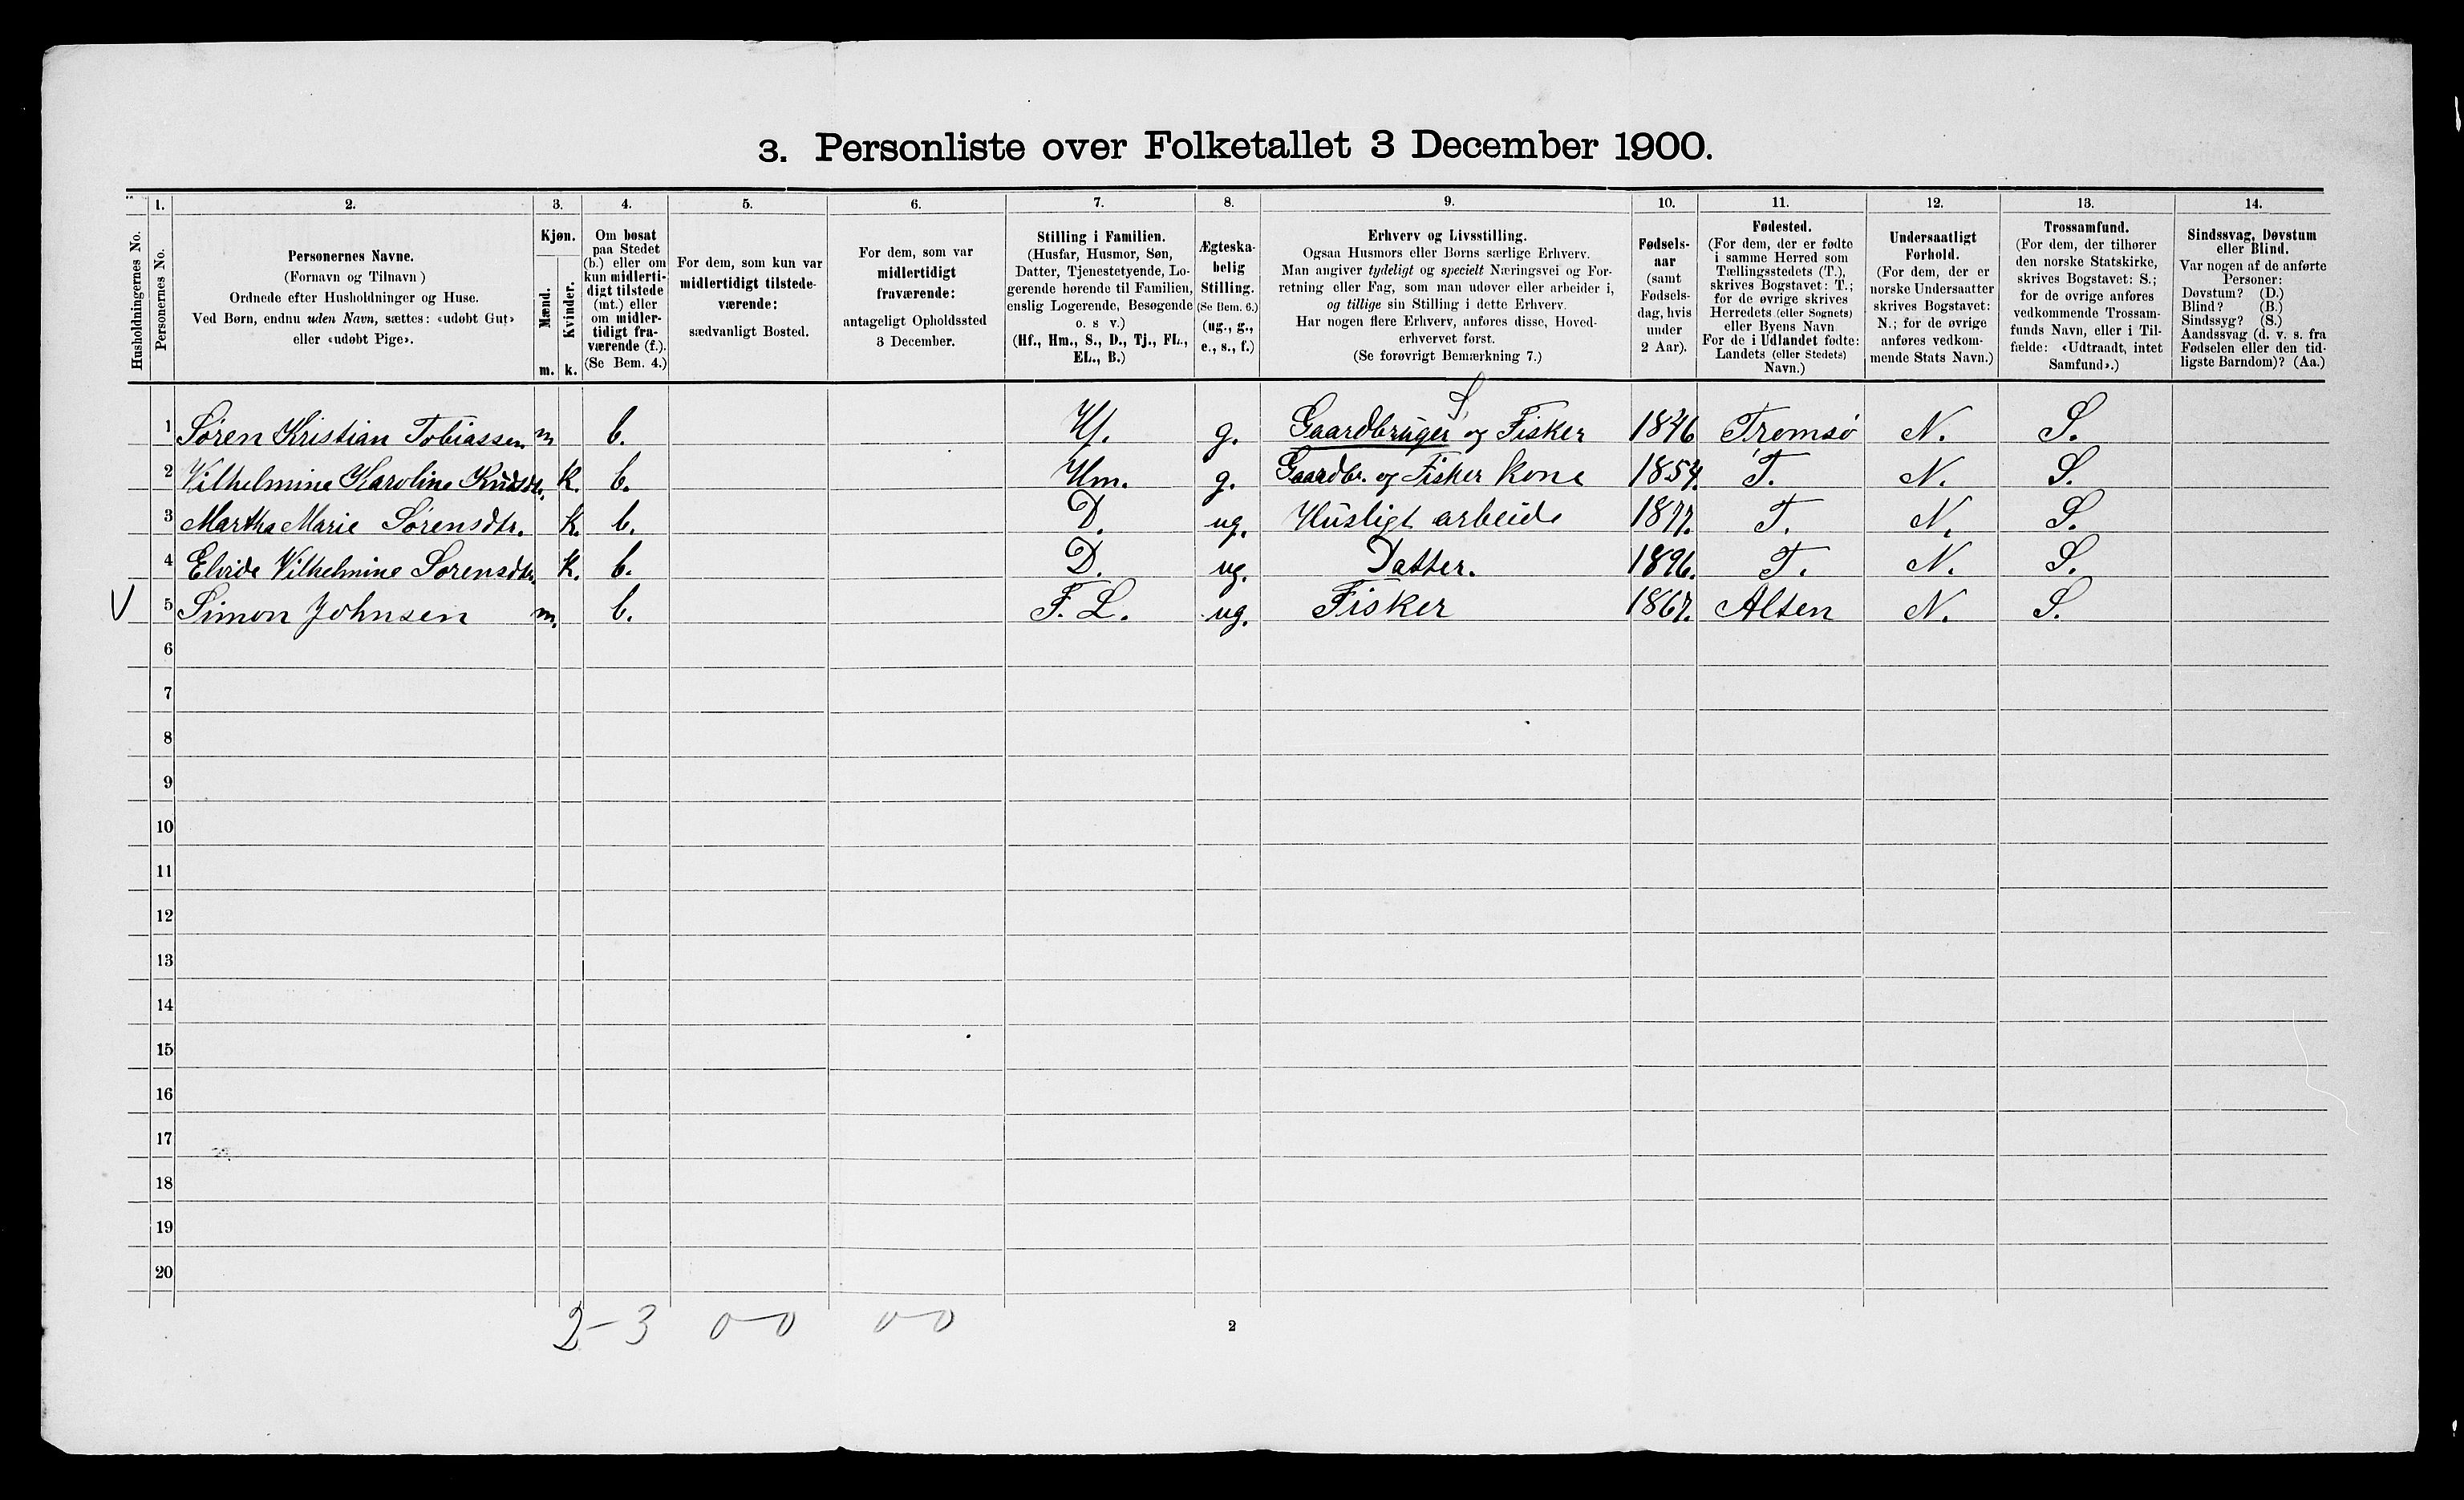 3. Personliste over Folketallet 3 December 1900.
1. 2. 3. 4. 5. 6. 7. 8. 9. 10. 11. 12. 13. 14.
Husholdningernes No.
Personernes No.
Personernes Navne.
(Fornavn og Tilnavn)
Ordnede efter Husholdninger og Huse.
Ved Børn, endnu uden Navn, sættes: «udøbt Gut»
eller «udøbt Pige».
Kjøn.
Mænd.
Kvinder.
m. k.
Om bosat
paa Stedet
(b.) eller om
kun midlerti-
digt tilstede
(mt.) eller
om midler-
tidigt fra-
værende (f.).
(Se Bem. 4.)
For dem, som kun var
midlertidigt tilstede-
værende:
sædvanligt Bosted.
For dem, som var
midlertidigt
fraværende:
antageligt Opholdssted
3 December.
Stilling i Familien.
(Husfar, Husmor, Søn,
Datter, Tjenestetyende, Lo-
gerende hørende til Familien,
enslig Logerende, Besøgende
o. s v.)
(Hf., Hm., S., D., Tj., FL.,
EL., B.)
Ægteska-
belig
Stilling.
(Se Bem. 6.)
(ug., g.,
e., s., f.)
Erhverv og Livsstilling.
Ogsaa Husmors eller Børns særlige Erhverv.
Man angiver tydeligt og specielt Næringsvei og For-
retning eller Fag, som man udøver eller arbeider i,
og tillige sin Stilling i dette Erhverv.
Har nogen flere Erhverv, anføres disse, Hoved-
erhvervet først.
(Se forøvrigt Bemærkning 7.)
Fødsels-
aar
(samt
Fødsels-
dag, hvis
under
2 Aar).
Fødested.
(For dem, der er fødte
i samme Herred som
Tællingsstedets (T.),
skrives Bogstavet: T.;
for de øvrige skrives
Herredets (eller Sognets)
eller Byens Navn
For de i Udlandet fødte:
Landets (eller Stedets)
Navn.)
Undersaatligt
Forhold.
(For dem, der er
norske Undersaatter
skrives Bogstavet:
N.; for de øvrige
anføres vedkom-
mende Stats Navn.)
Trossamfund.
(For dem, der tilhører
den norske Statskirke,
skrives Bogstavet: S.;
for de øvrige anføres
vedkommende Trossam-
funds Navn, eller i Til-
fælde: «Udtraadt, intet
Samfund».)
Sindssvag, Døvstum
eller Blind.
Var nogen af de anførte
Personer:
Døvstum? (D.)
Blind? (B.)
Sindssyg? (S.)
Aandssvag (d. v. s. fra
Fødselen eller den tid-
ligste Barndom)? (Aa.)
S.
1 Søren Kristian Tobiassen m b. Hf. g. Gaardbruger og Fisker 1846 Tromsø N. S.
2 Vilhelmine Karoline Knudsdtr. k. b. Hm. g. Gaardbr. og Fisker kone 1854. T. N. S.
3 Martha Marie Sørensdtr. k. b. D. ug. Husligt arbeide 1877. T. N. S.
4 Elvide Vilhelmine Sørensdtr. k. b. D. ug. Datter. 1896. T. N. S.
V 5 Simon Johnsen m. b. F. L. ug. Fisker 1867. Alten N. S.
6
7
8
9
10
11
12
13
14
15
16
17
18
19
20
2-3 0-0 0-0
2